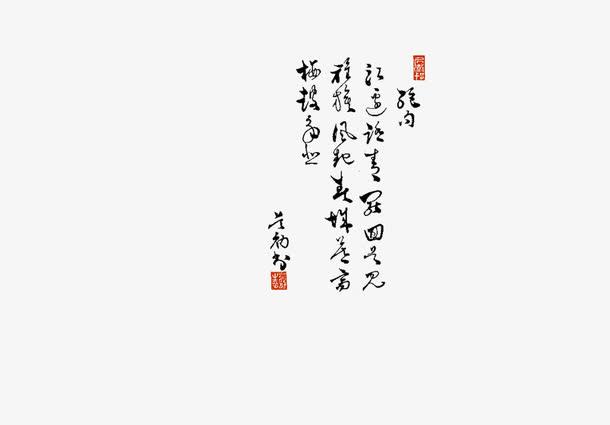 絕句
江邊踏青罷回首見
旌旗風起春城暮高
樓鼓角悲
書